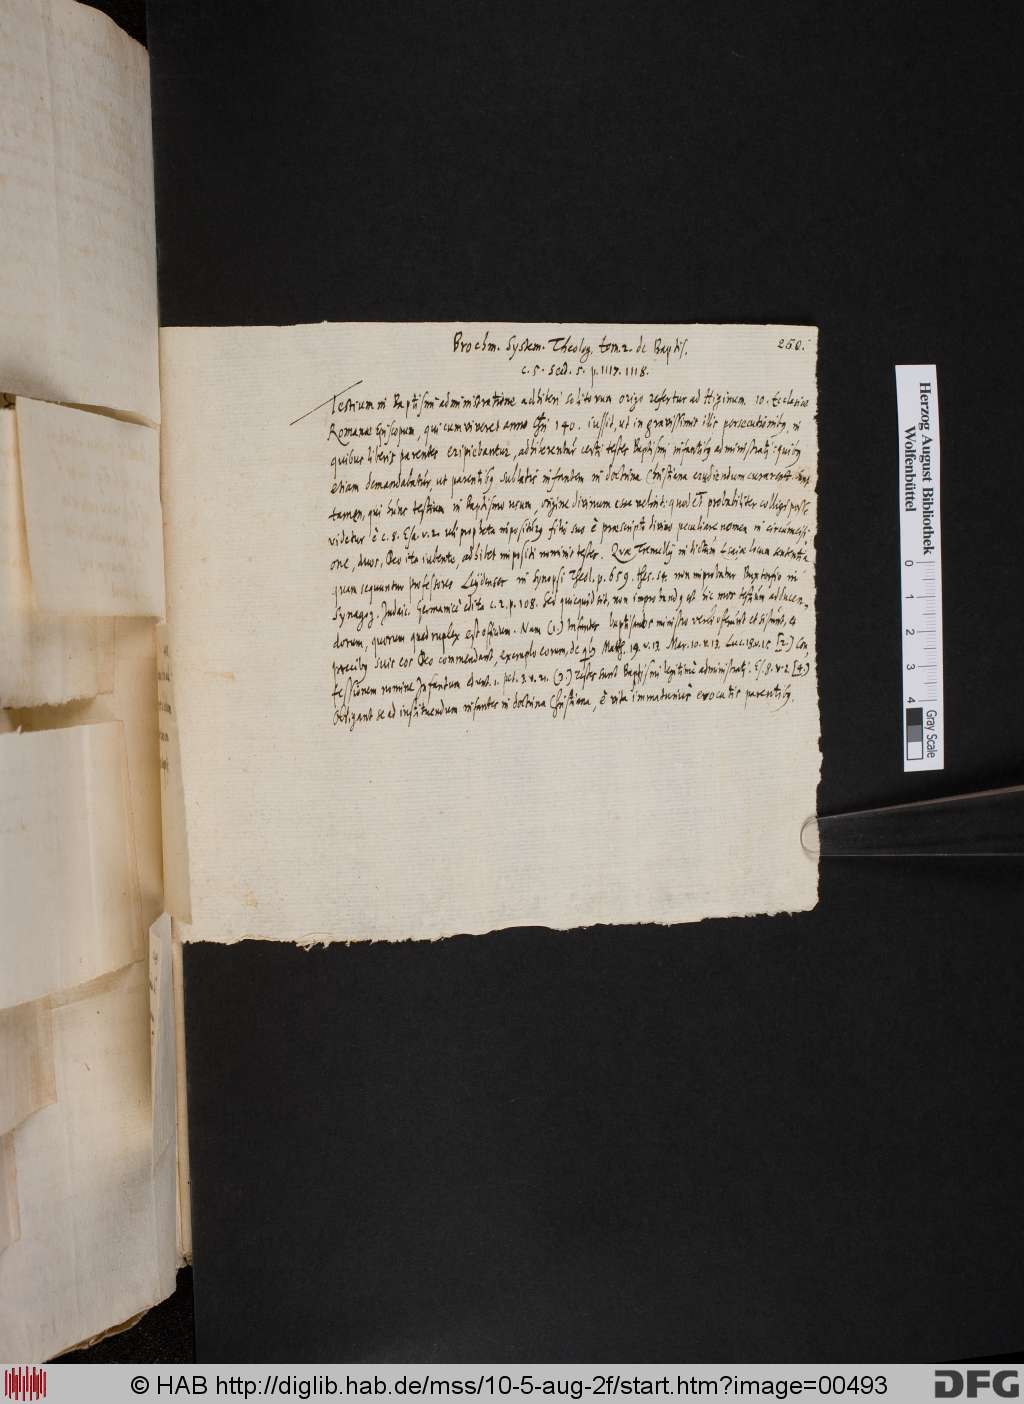 250.
Brochm. System. Theolog. tom. 2. de Baptis.
c. 5. sect. 5. p. 1117. 1118.
Testium in Baptismi administratione adhiberi solitorum origo refertur ad Higinum 10. Ecclesiae
Romanae Episcopum, qui cum viveret anno Chri 140. iussit, ut in gravissimis illis persecutionib9, in
quibus liberis parentes eripiebantur, adhiberentur certi testes Baptismi infantib9 administrati: quib9
etiam demandabatur, ut parentib9 sublatis infantem in doctrina Christiana erudiendum curarent.
tamen, qui hunc testium in Baptismo usum, origine divinum esse velint: quod et probabiliter colligi posse
videtur è c. 8. Esa. v. 2. ubi propheta impositur9 filio suo è praescripto divino peculiare nomen in circumcisi-
one, duos, Deo ita iubente, adhibet impositi nominis testes. Quae Tremellij in dictum Esaiae locum sententia
quam sequuntur Professores Leydenses in Synopsi Theol. p. 659. thes. 54. non improbatur Buxtorfio in
Synagog. Judaic. Germanicè edita c. 2. p. 108. Sed quicquid sit, non improband9 est hic mos testium adhiben-
dorum, quorum quadruplex est officium. Nam (1.) Infantes baptisandos ministro verbi offerunt et sistunt, et
precib9 suis eos Deo commendant, exemplo eorum, de qb9 Matth. 19. v. 13. Mar. 10. v. 13. Luc. 18. v. 15. [2.] Con-
fessionem nomine Infantum edunt. 1. Pet. 3. v. 21. (3.) Testes sunt Baptismi legitimè administrati. Es. 8. v. 2. [4.]
Obligant se ad instituendum infantes in doctrina Christiana, è vita immaturius evocatis parentib9.
Herzog August Bibliothek
Wolfenbüttel
0 1 2 3 4
Gray Scale
© HAB http://diglib.hab.de/mss/10-5-aug-2f/start.htm?image=00493
DFG